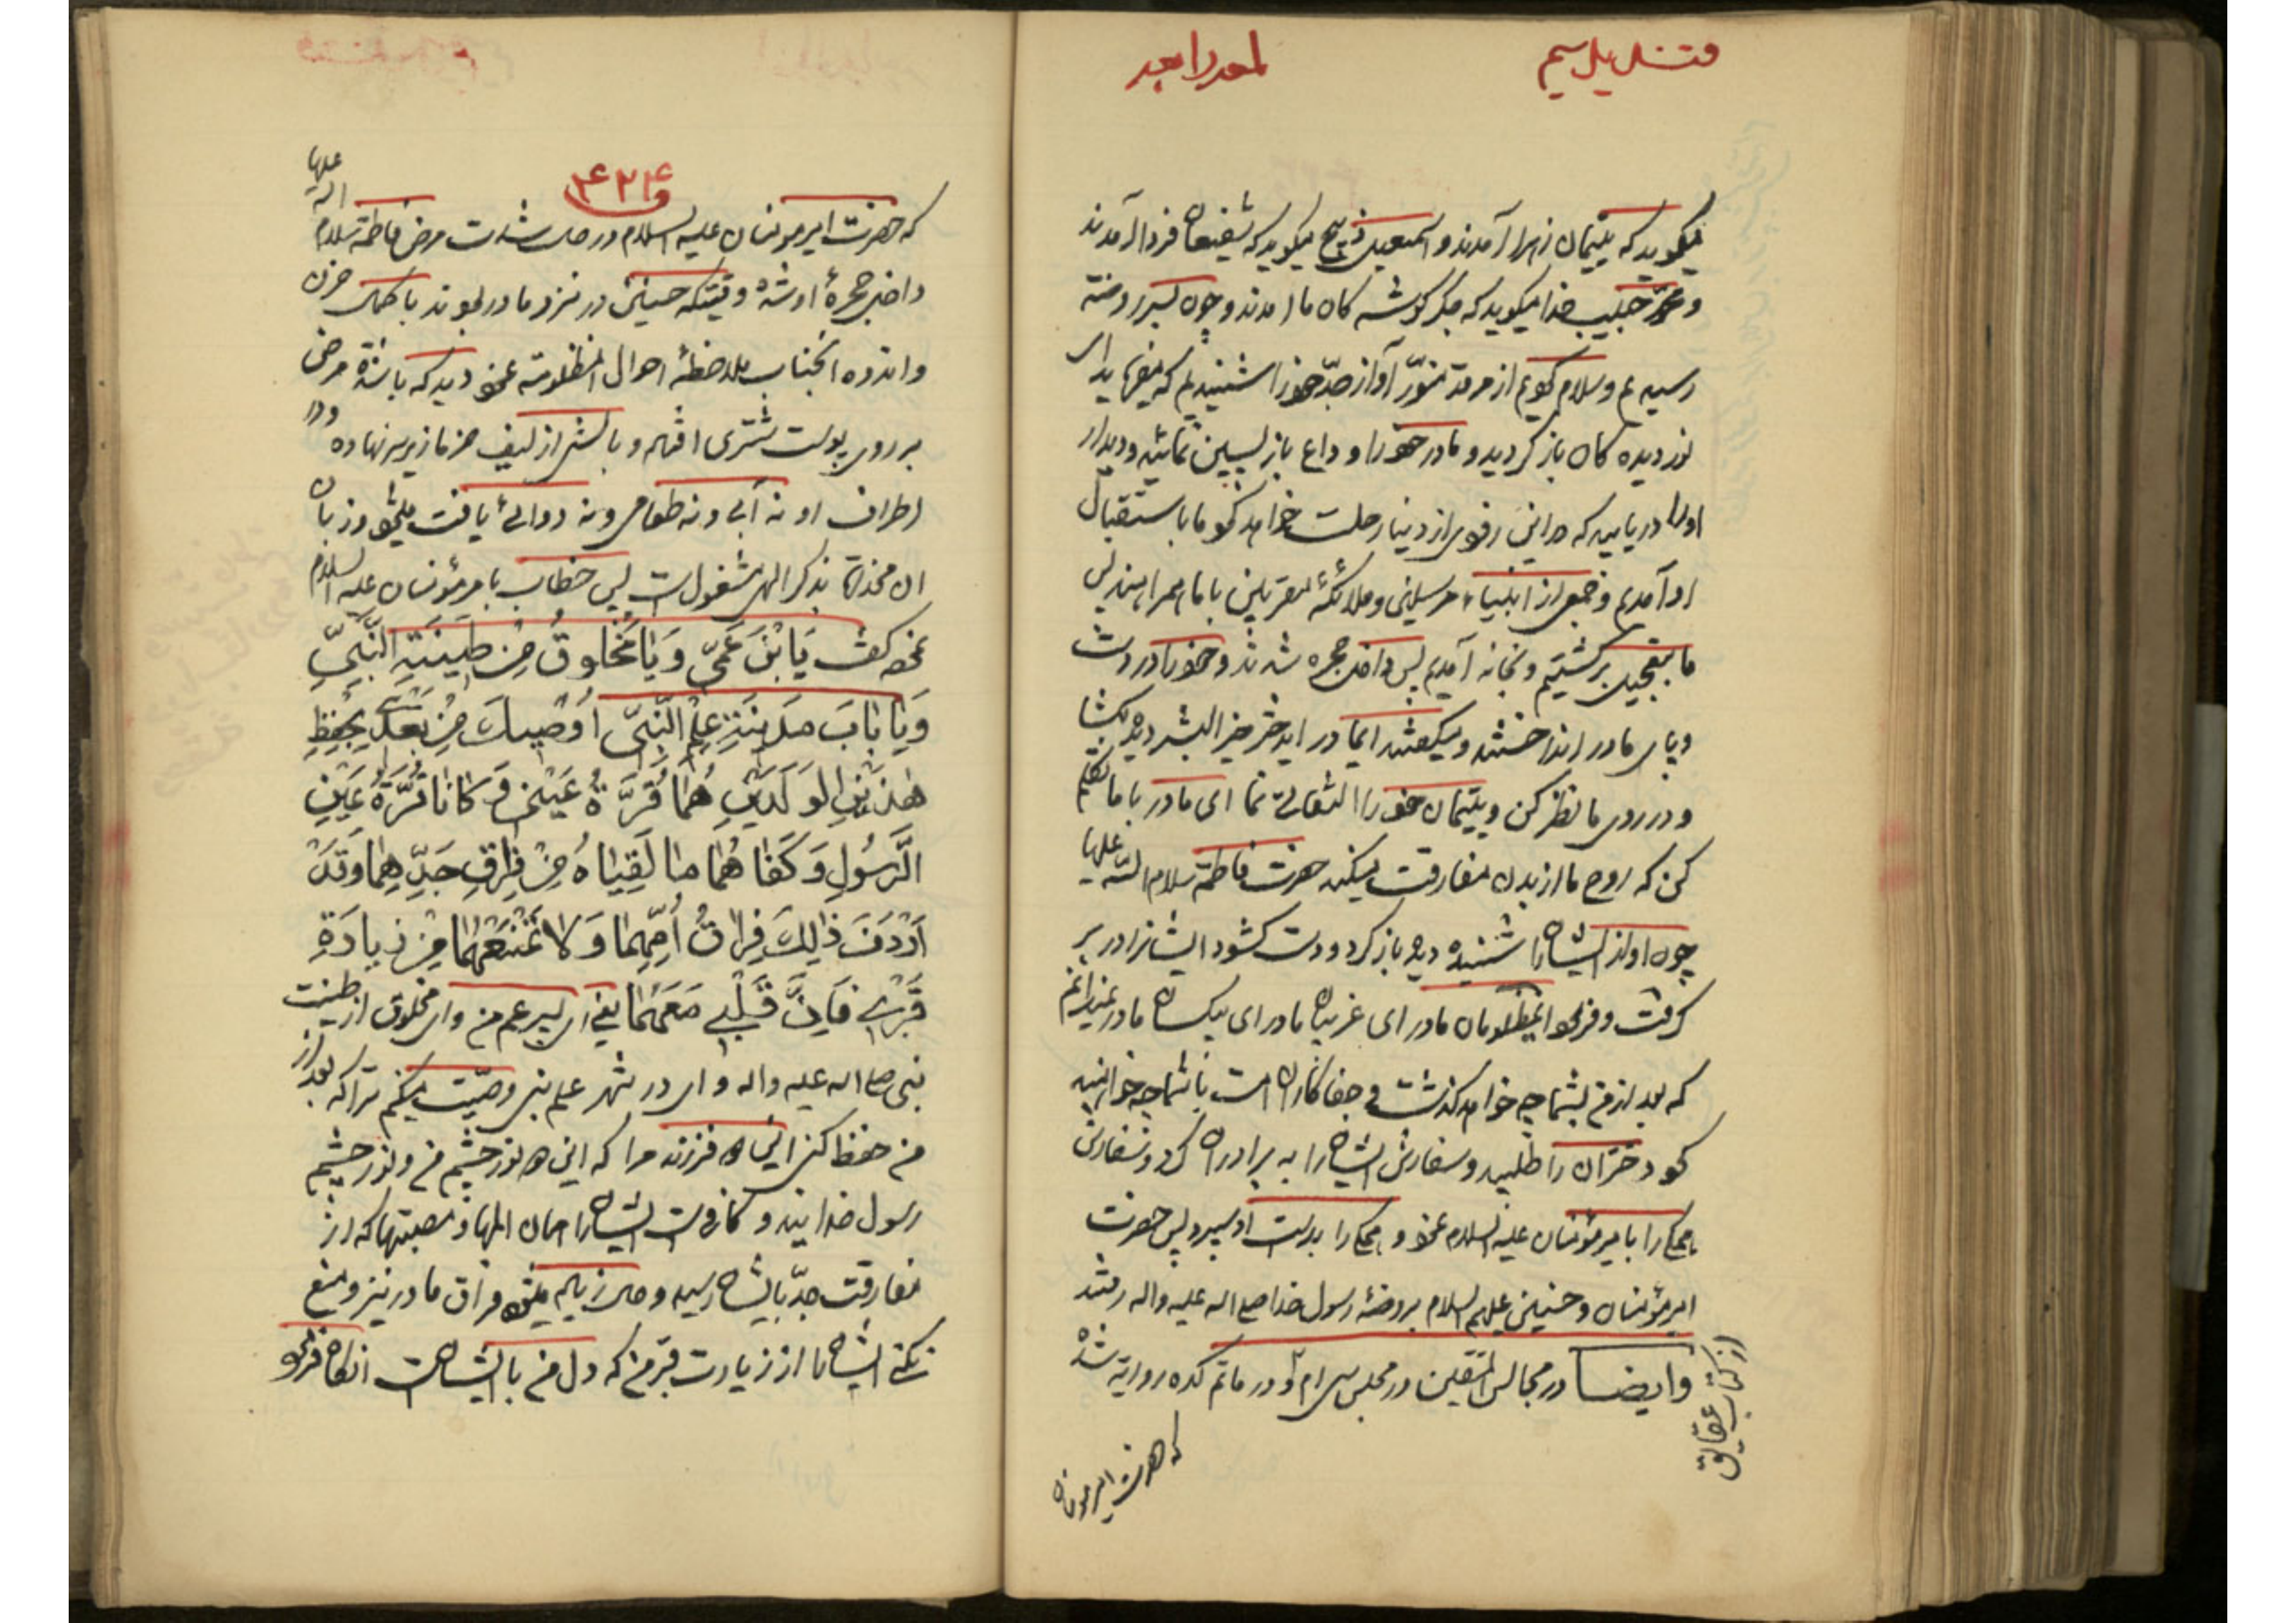 میکوید که یتیمان زهرا آمدند و اسمعیل ذبیح میکوید که شفیعان فردا آمدند
و محمد حبیب خدا میکوید که جگر کوشه کان ما آمدند و چون بسر روضه
رسیدیم و سلام کردیم از مرقد منوّر آواز جدّ خود را شنیدیم که میفرماید ای
نور دیده کان باز کردید و مادر خود را وداع باز پسین نمائید و دیدار
او را دریابید که در این زودی از دنیا رحلت خواهد نمود ما باستقبال
او آمدیم و جمعی از انبیاء مرسلین و ملائکه مقربین با ما همراهند پس
ما بتعجیل برکشتیم و بخانه آمدیم پس داخل حجره شدند و خود را در دست
و پای مادر انداختند و میکفتند ایمادر ایدختر خیر البشر دیده بکشا
و در روی ما نظر کن و یتیمان خود را التفاتی نما ای مادر با ما تکلم
کن که روح ما از بدن مفارقت میکند حضرت فاطمه سلام الله علیها
چون آواز ایشان را شنیده دیده باز کرد و دست کشود ایشانرا در بر
کرفت و فرمود ایمظلومان مادر ای غریبان مادر ای بیکسان مادر نمیدانم
که بعد از من بشما چه خواهد کذشت و جفا کاران امت با شما چه خواهند
نمود دختران را طلبید و سفارش ایشان را به برادران کرد و سفارش
همکی را بامیر مؤمنان علیه السلام نمود و همکی را بدست او سپرد پس حضرت
امیر مؤمنان و حسنین علیهم السلام بروضهٔ رسول خدا صلی الله علیه واله رفتند
وایضا در مجالس المتقین در مجلس سی ام و در ماتم کده روایة شده
از کتاب
که حضرت امیر مومنان
۴۲۴
که حضرت امیر مومنان علیه السلام در حالت شدت مرض فاطمه سلام الله علیها
داخل حجرهٔ او شد وقتیکه حسنین در نزد مادر بودند با کمال حزن
و اندوه انجناب ملاحظهٔ احوال انمظلومه نمود دید که باشدّة مرض
بر روی پوست شتری افتاده و بالشی از لیف خرما زیر سر نهاده و در
اطراف او نه آبی و نه طعامی و نه دوائی یافت میشود و زبان
ان مخدّره بذکر الهی مشغول است پس خطاب بامیر مؤمنان علیه السلام
نموده کفت یَا بْنَ عَمّی وَیَا مَخْلوقُ مِنْ طینَةِ النَّبِیِّ
وَیَا بَابَ مَدینَةِ عِلْمِ النَّبِیِّ اُوصیكَ مِنْ بَعْدی بِحِفْظِ
هٰذَیْنِ الْوَلَدَیْنِ هُمَا قُرَّةُ عَیْنی وَ کَانَا قُرَّةُ عَیْنِ
الرَّسُولِ وَ کَفَا هُمَا مَا لَقِیَاهُ مِنْ فِرَاقِ جَدِّهِمَا وَقَدْ
اَرْدَفَ ذٰلِكَ فِرَاقُ اُمِّهِمَا وَلَا تَمْنَعْهُمَا مِنْ زِیَادَةِ
قَبْری فَاِنَّ قَلْبی مَعَهُمَا یعنی ای پسر عم من و ای مخلوق از طینت
نبی صلی الله علیه واله و ای در شهر علم نبی وصیّت میکنم ترا که بعد از
من حفظ کنی این دو فرزند مرا که این دو نور چشم من و نور چشم
رسول خدایند و کافی است ایشان را همان المها و مصیبتها که از
مفارقت جدّ بایشان رسیده و حال زیاد میشود فراق مادر نیز و منع
نکنی ایشان را از زیارت قبر من که دل من با ایشان است انکاه فرمود